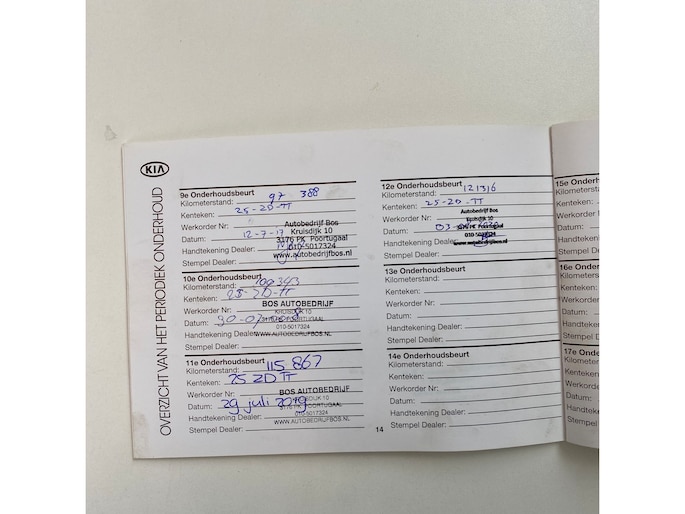 KIA
OVERZICHT VAN HET PERIODIEK ONDERHOUD
9e Onderhoudsbeurt
Kilometerstand: 97 388
Kenteken: 25-ZD-TT
Werkorder Nr:
Datum: 12-7-17
Handtekening Dealer:
Stempel Dealer:
Autobedrijf Bos
Kruisdijk 10
3176 PK Poortugaal
010-5017324
www.autobedrijfbos.nl
10e Onderhoudsbeurt
Kilometerstand:
Kenteken: 25-ZD-TT
Werkorder Nr:
Datum:
Handtekening Dealer:
Stempel Dealer:
BOS AUTOBEDRIJF
KRUISDIJK 10
POORTUGAAL
010-5017324
WWW.AUTOBEDRIJFBOS.NL
11e Onderhoudsbeurt
Kilometerstand: 115 867
Kenteken: 25 ZD TT
Werkorder Nr:
Datum: 29 juli 2019
Handtekening Dealer:
Stempel Dealer:
BOS AUTOBEDRIJF
KRUISDIJK 10
3176 PK POORTUGAAL
010-5017324
WWW.AUTOBEDRIJFBOS.NL
12e Onderhoudsbeurt
Kilometerstand: 121316
Kenteken: 25-ZD-TT
Werkorder Nr:
Datum:
Handtekening Dealer:
Stempel Dealer:
Autobedrijf Bos
Kruisdijk 10
3176 PK Poortugaal
010-5017324
www.autobedrijfbos.nl
13e Onderhoudsbeurt
Kilometerstand:
Kenteken:
Werkorder Nr:
Datum:
Handtekening Dealer:
Stempel Dealer:
14e Onderhoudsbeurt
Kilometerstand:
Kenteken:
Werkorder Nr:
Datum:
Handtekening Dealer:
Stempel Dealer:
14
15e Onde
Kilometers
Kenteken:
Werkorder
Datum:
Handteken
Stempel D
16e Onde
Kilometers
Kenteken:
Werkorder
Datum:
Handteken
Stempel
17e Onde
Kilometer
Kenteken
Werkorde
Datum:
Handteke
Stempel